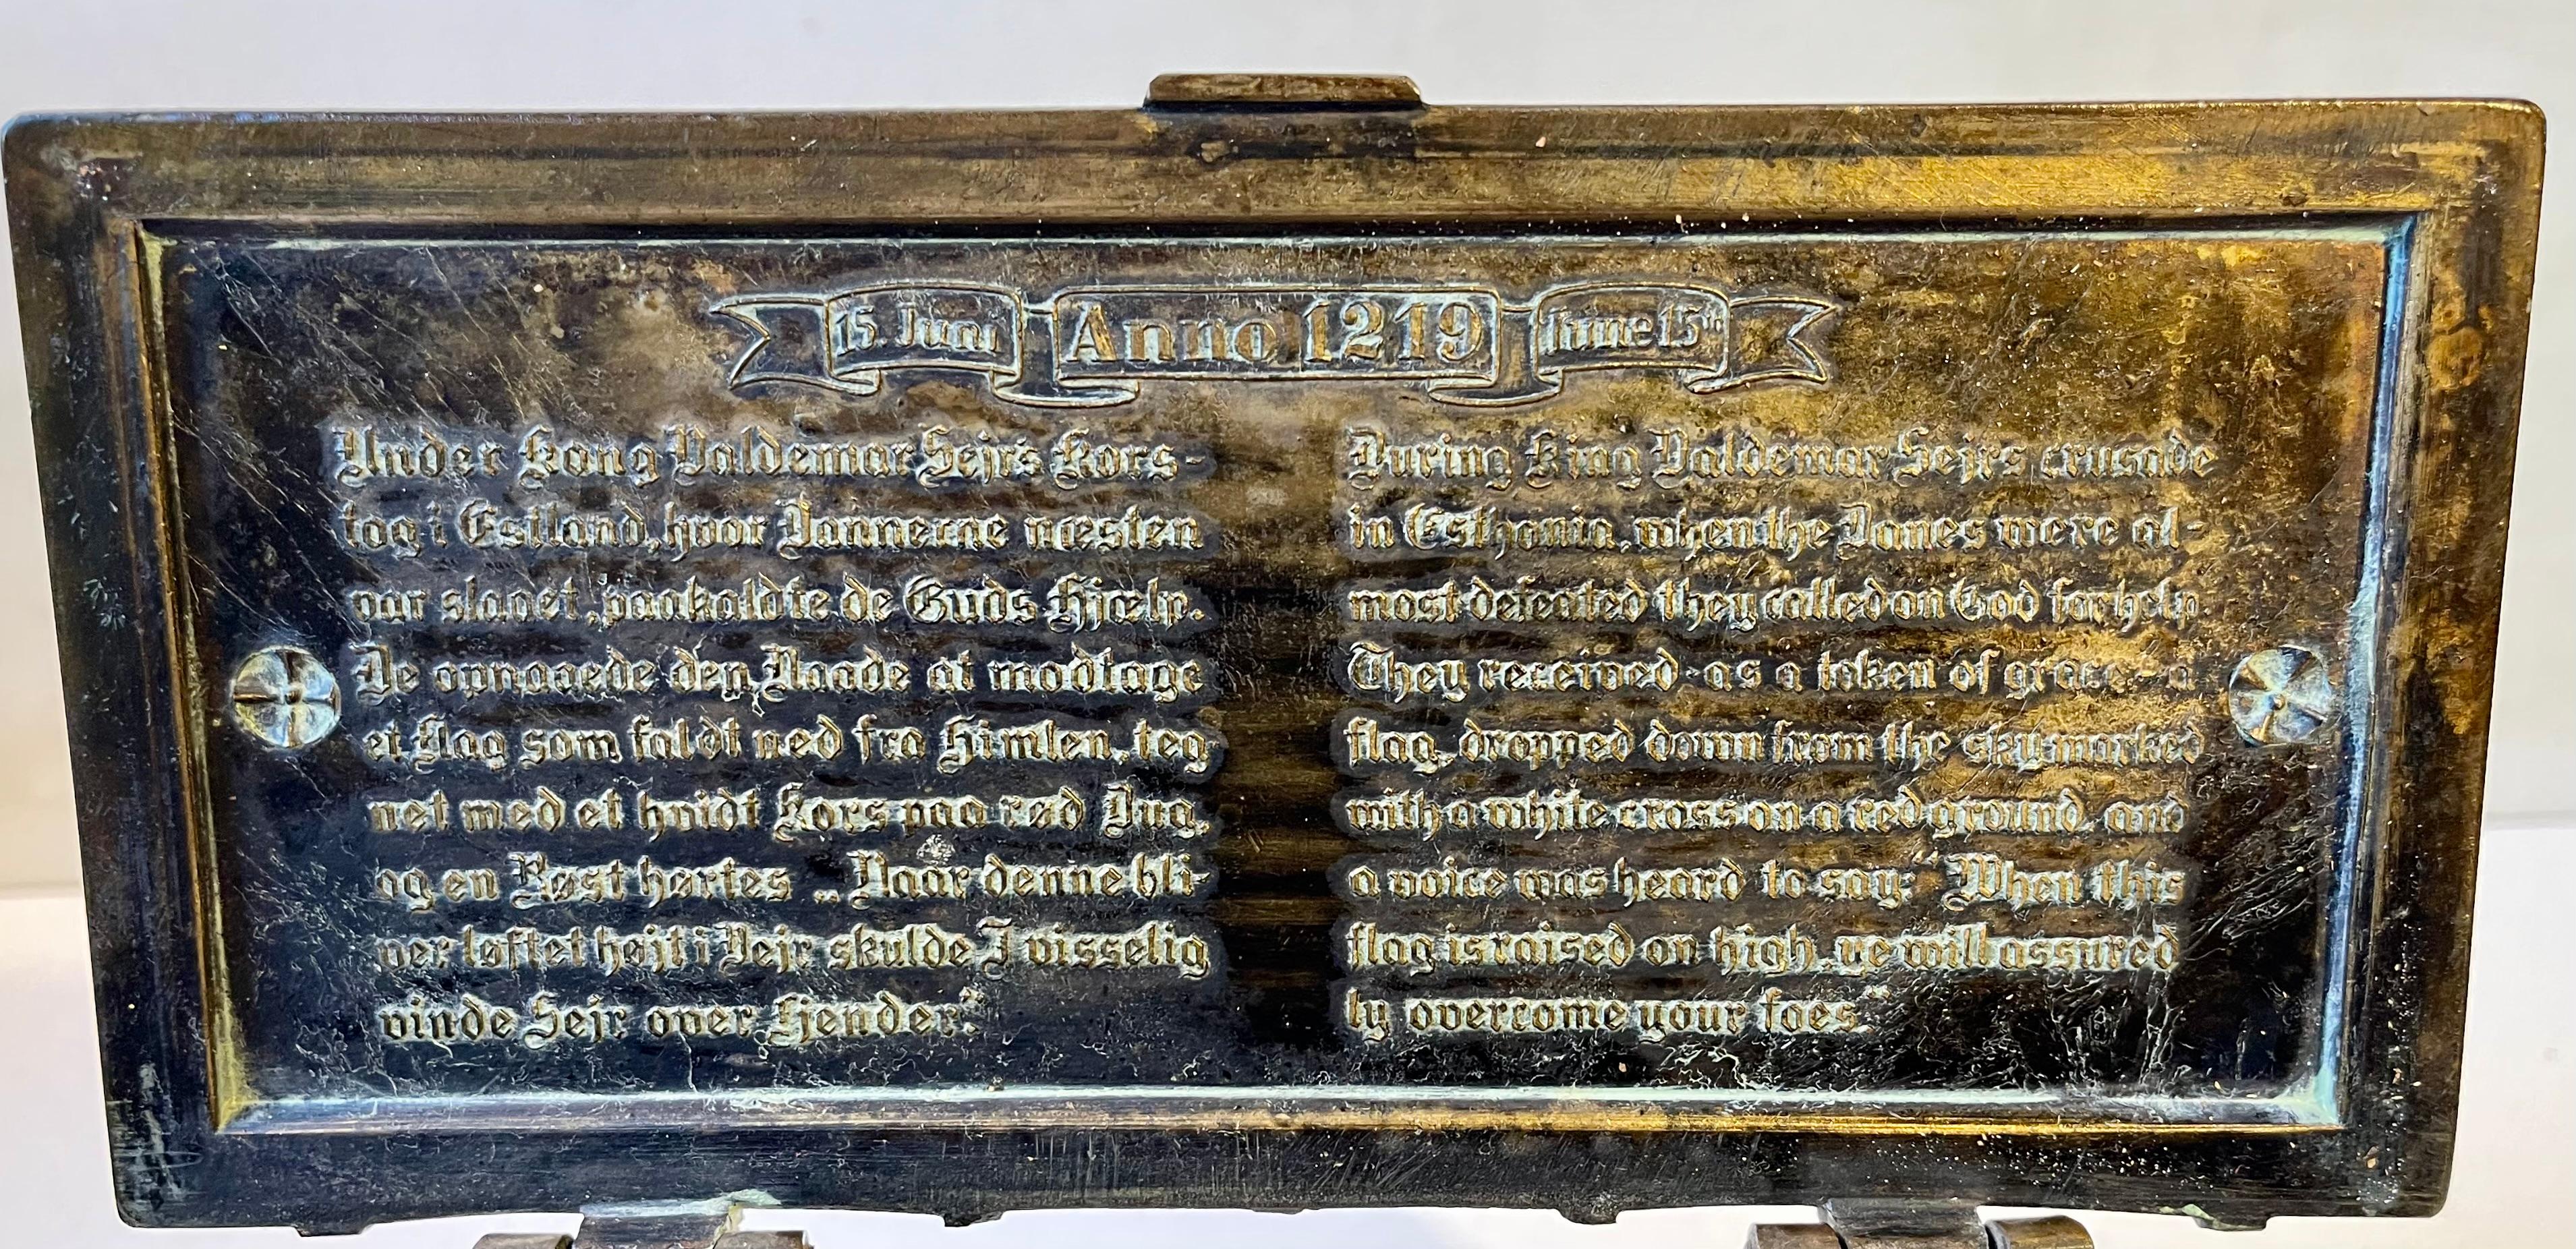 15. Juni Anno 1219 June 15th
Under Kong Valdemar Sejrs Kors-
tog i Estland, hvor Dannerne næsten
var slaaet, paakaldte de Guds Hjælp.
De opnaaede den Naade at modtage
et Flag som faldt ned fra Himlen, teg-
net med et hvidt Kors paa rød Dug,
og en Røst hørtes „Naar denne bli-
ver løftet højt i Vejr skulde I visselig
vinde Sejr over Fjender."
During King Valdemar Sejrs crusade
in Esthonia, when the Danes were al-
most defeated they called on God for help
They received - as a token of grace - a
flag, dropped down from the sky marked
with a white cross on a red ground, and
a voice was heard to say: "When this
flag is raised on high, ye will assured
ly overcome your foes"